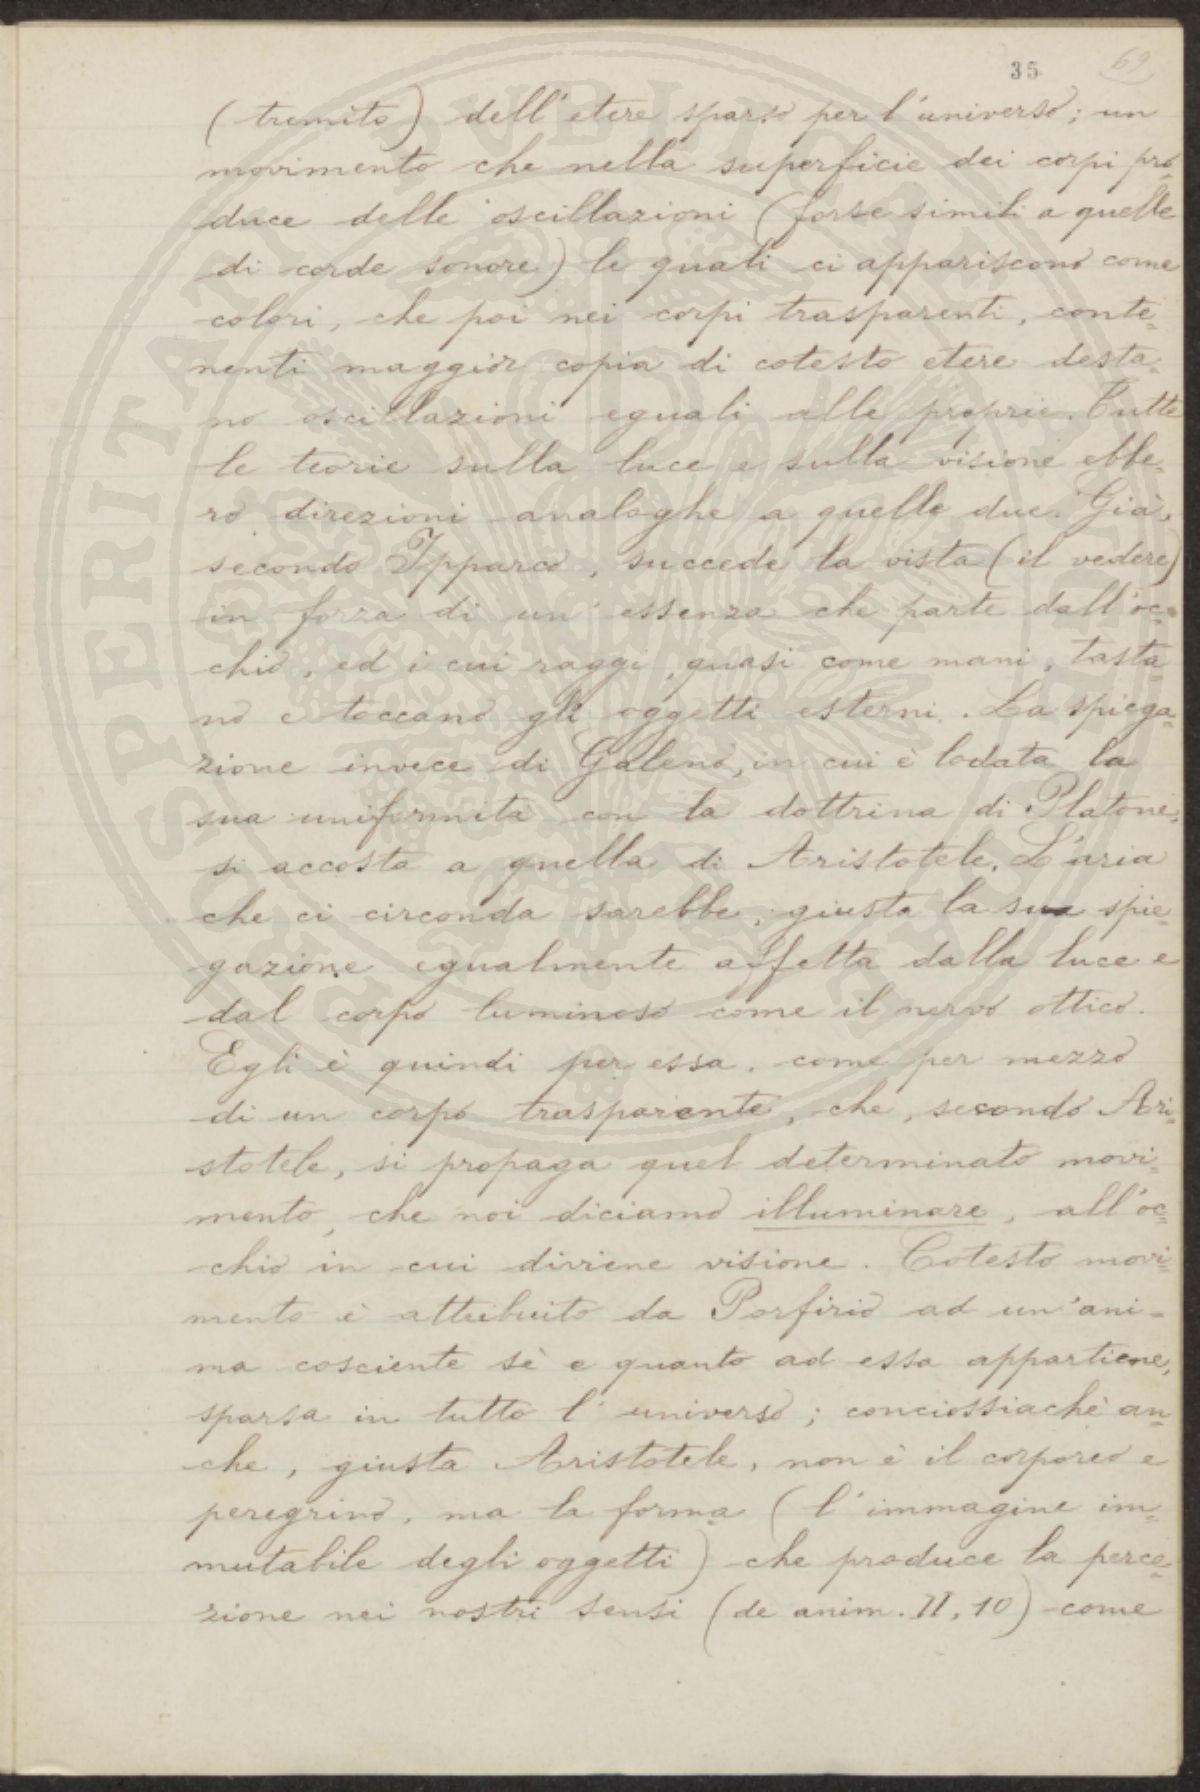 35
69
(tremito) dell'etere sparso per l'universo; un
movimento che nella superficie dei corpi pro
duce delle oscillazioni (forse simili a quelle
di corde sonore) le quali ci appariscono come
colori, che poi nei corpi trasparenti, conte=
nenti maggior copia di cotesto etere desta=
no oscillazioni eguali alle proprie. Tutte
le teorie sulla luce e sulla visione ebbe=
ro direzioni analoghe a quelle due. Già,
secondo Ipparco, succede la vista (il vedere)
in forza di un'essenza che parte dall'oc=
chio, ed i cui raggi, quasi come mani, tasta
no e toccano gli oggetti esterni. La spiega=
zione invece di Galeno, in cui è lodata la
sua uniformità con la dottrina di Platone,
si accosta a quella di Aristotele. L'aria
che ci circonda sarebbe, giusta la sua spie=
gazione egualmente affetta dalla luce e
dal corpo luminoso come il nervo ottico.
Egli è quindi per essa, come per mezzo
di un corpo trasparente, che, secondo Ari=
stotele, si propaga quel determinato movi=
mento, che noi diciamo illuminare, all'oc=
chio in cui diviene visione. Cotesto movi=
mento è attribuito da Porfirio ad un'ani=
ma cosciente sè e quanto ad essa appartiene,
sparsa in tutto l'universo; conciossiachè an=
che, giusta Aristotele, non è il corporeo e
peregrino, ma la forma (l'immagine im=
mutabile degli oggetti) che produce la perce=
zione nei nostri sensi (de anim. II, 10) come
PROSPERITATI PUBLICAE